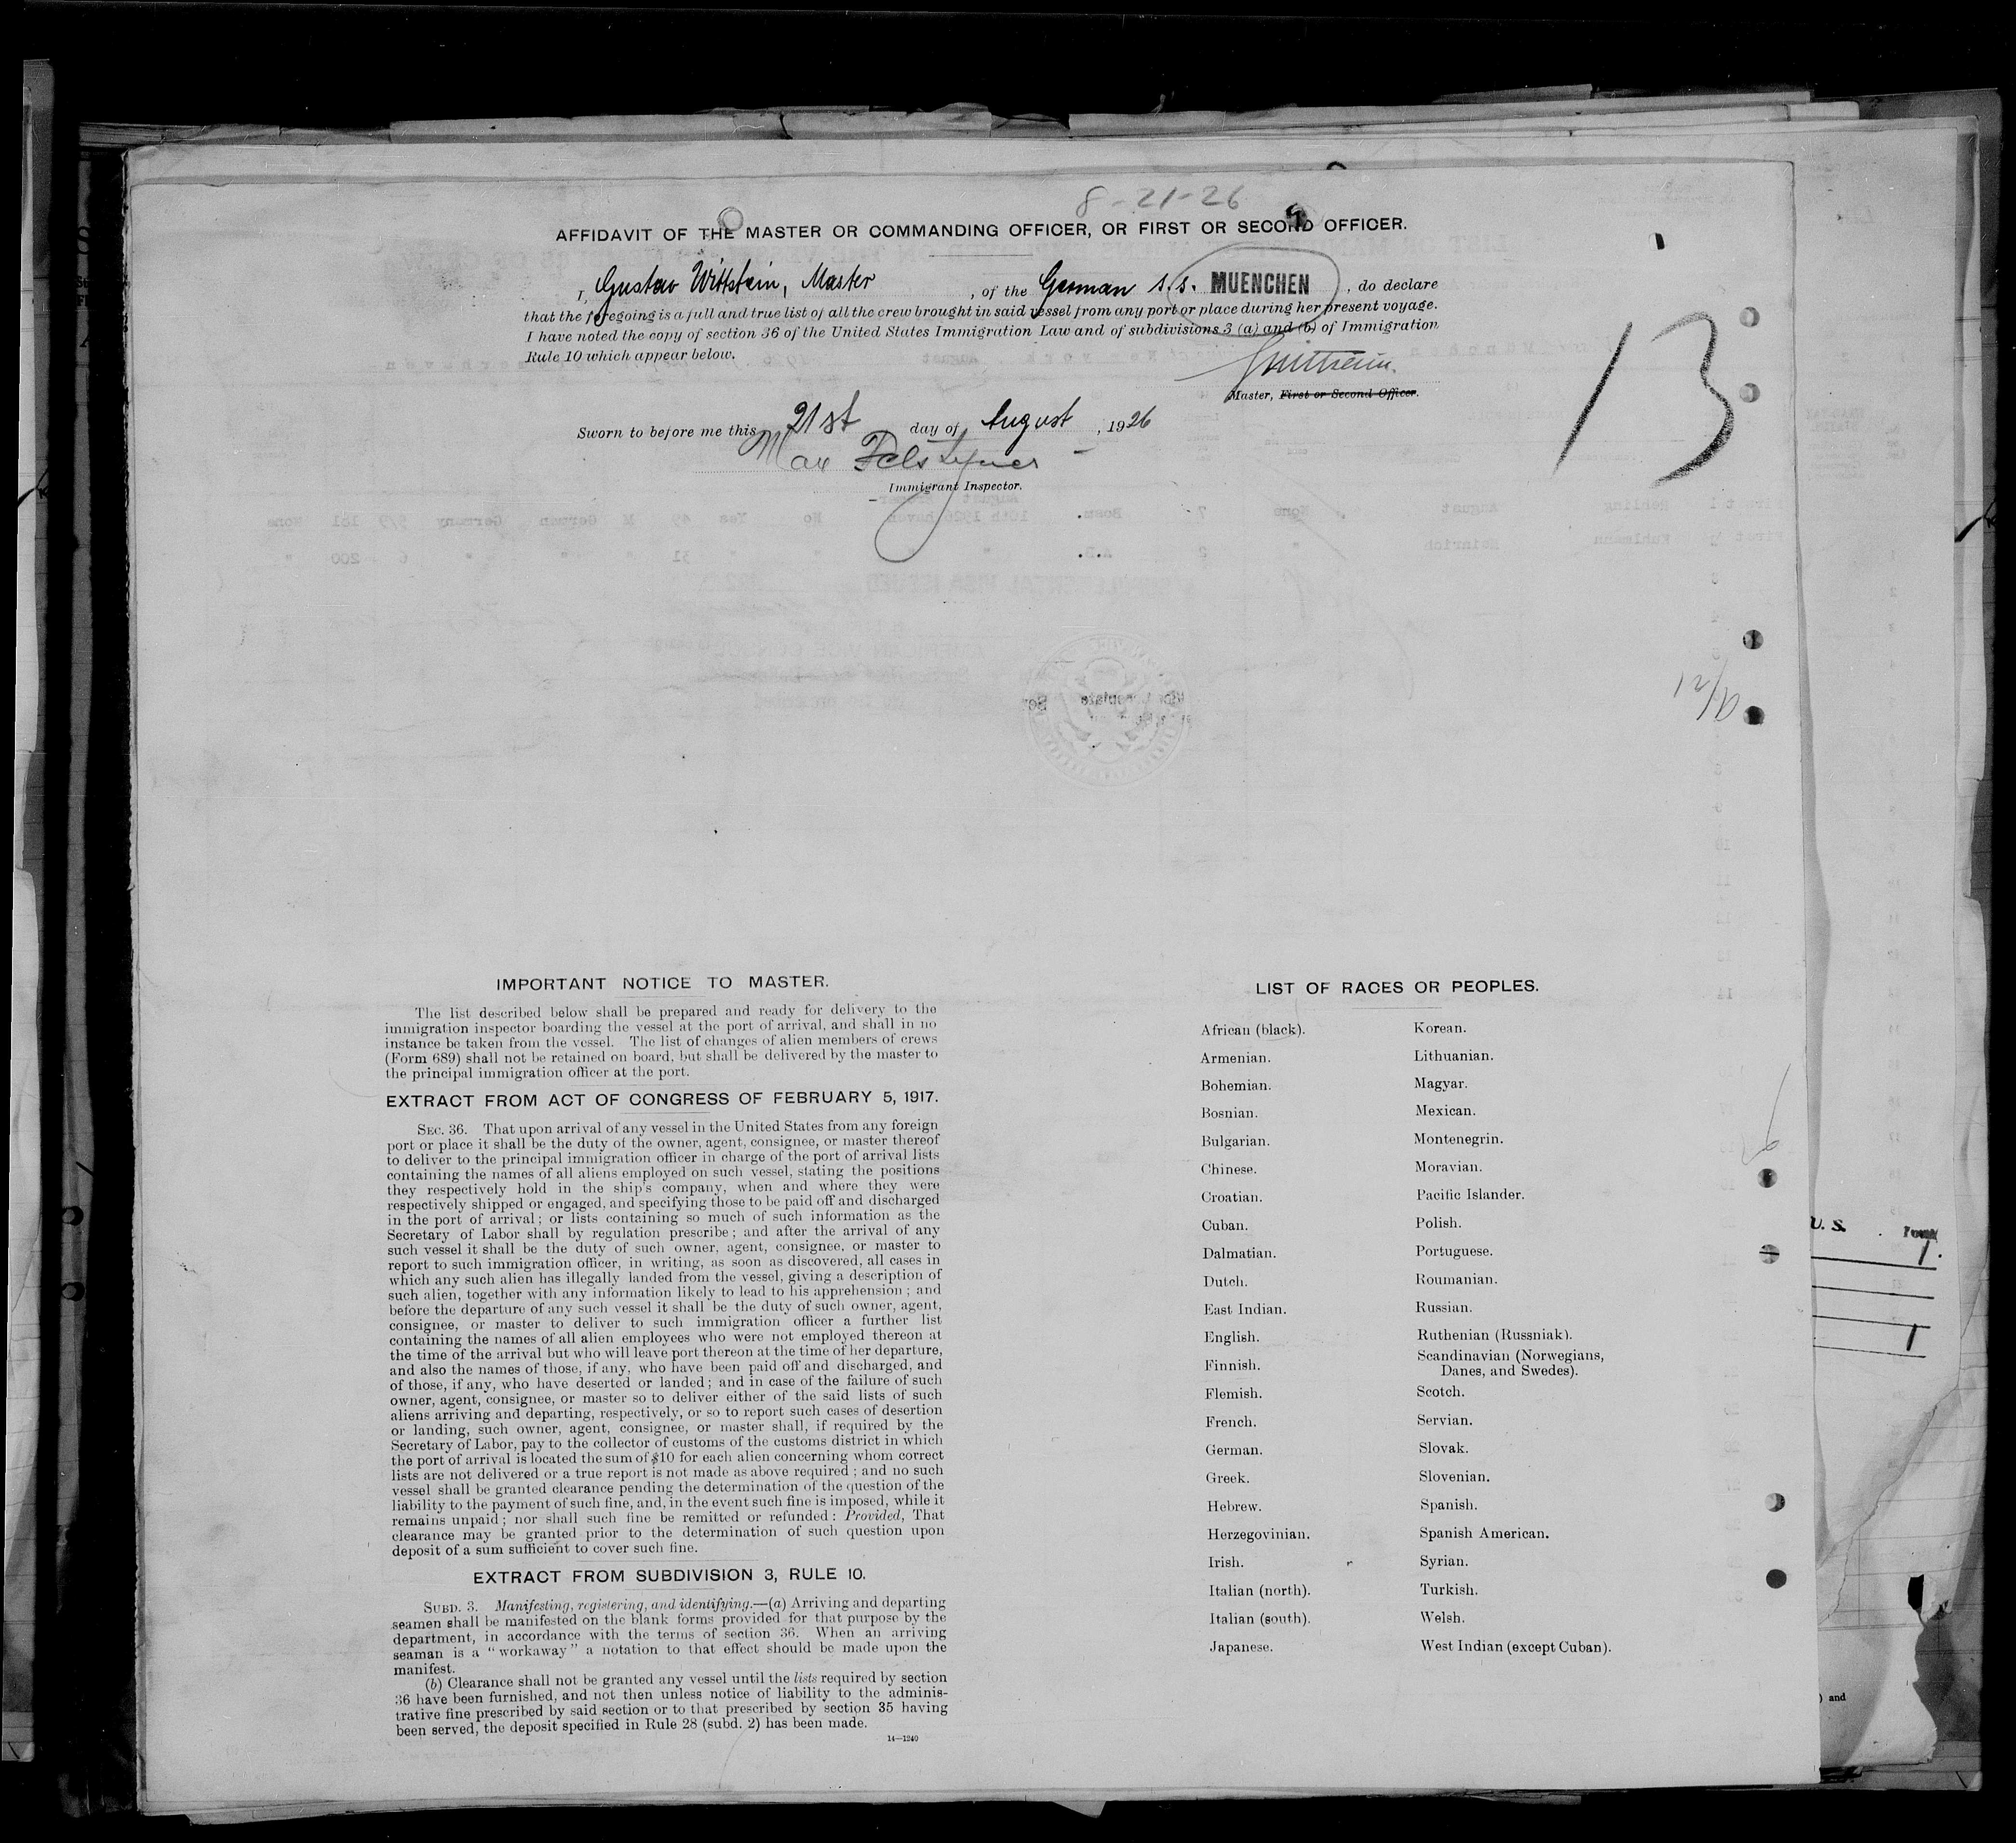 8-21-26
AFFIDAVIT OF THE MASTER OR COMMANDING OFFICER, OR FIRST OR SECOND OFFICER.
I, Gustav Wittstein, Master, of the German s.s. MUENCHEN, do declare
that the foregoing is a full and true list of all the crew brought in said vessel from any port or place during her present voyage.
I have noted the copy of section 36 of the United States Immigration Law and of subdivisions 3 (a) and (b) of Immigration
Rule 10 which appear below.
Master, First or Second Officer.
13
Sworn to before me this 21st day of August, 1926
Max
Immigrant Inspector.
IMPORTANT NOTICE TO MASTER.
The list described below shall be prepared and ready for delivery to the
immigration inspector boarding the vessel at the port of arrival, and shall in no
instance be taken from the vessel. The list of changes of alien members of crews
(Form 689) shall not be retained on board, but shall be delivered by the master to
the principal immigration officer at the port.
EXTRACT FROM ACT OF CONGRESS OF FEBRUARY 5, 1917.
SEC. 36. That upon arrival of any vessel in the United States from any foreign
port or place it shall be the duty of the owner, agent, consignee, or master thereof
to deliver to the principal immigration officer in charge of the port of arrival lists
containing the names of all aliens employed on such vessel, stating the positions
they respectively hold in the ship's company, when and where they were
respectively shipped or engaged, and specifying those to be paid off and discharged
in the port of arrival; or lists containing so much of such information as the
Secretary of Labor shall by regulation prescribe; and after the arrival of any
such vessel it shall be the duty of such owner, agent, consignee, or master to
report to such immigration officer, in writing, as soon as discovered, all cases in
which any such alien has illegally landed from the vessel, giving a description of
such alien, together with any information likely to lead to his apprehension; and
before the departure of any such vessel it shall be the duty of such owner, agent,
consignee, or master to deliver to such immigration officer a further list
containing the names of all alien employees who were not employed thereon at
the time of the arrival but who will leave port thereon at the time of her departure,
and also the names of those, if any, who have been paid off and discharged, and
of those, if any, who have deserted or landed; and in case of the failure of such
owner, agent, consignee, or master so to deliver either of the said lists of such
aliens arriving and departing, respectively, or so to report such cases of desertion
or landing, such owner, agent, consignee, or master shall, if required by the
Secretary of Labor, pay to the collector of customs of the customs district in which
the port of arrival is located the sum of $10 for each alien concerning whom correct
lists are not delivered or a true report is not made as above required; and no such
vessel shall be granted clearance pending the determination of the question of the
liability to the payment of such fine, and, in the event such fine is imposed, while it
remains unpaid; nor shall such fine be remitted or refunded: Provided, That
clearance may be granted prior to the determination of such question upon
deposit of a sum sufficient to cover such fine.
EXTRACT FROM SUBDIVISION 3, RULE 10.
SUBD. 3. Manifesting, registering, and identifying.—(a) Arriving and departing
seamen shall be manifested on the blank forms provided for that purpose by the
department, in accordance with the terms of section 36. When an arriving
seaman is a "workaway" a notation to that effect should be made upon the
manifest.
(b) Clearance shall not be granted any vessel until the lists required by section
36 have been furnished, and not then unless notice of liability to the adminis-
trative fine prescribed by said section or to that prescribed by section 35 having
been served, the deposit specified in Rule 28 (subd. 2) has been made.
14—1240
LIST OF RACES OR PEOPLES.
African (black).
Armenian.
Bohemian.
Bosnian.
Bulgarian.
Chinese.
Croatian.
Cuban.
Dalmatian.
Dutch.
East Indian.
English.
Finnish.
Flemish.
French.
German.
Greek.
Hebrew.
Herzegovinian.
Irish.
Italian (north).
Italian (south).
Japanese.
Korean.
Lithuanian.
Magyar.
Mexican.
Montenegrin.
Moravian.
Pacific Islander.
Polish.
Portuguese.
Roumanian.
Russian.
Ruthenian (Russniak).
Scandinavian (Norwegians,
Danes, and Swedes).
Scotch.
Servian.
Slovak.
Slovenian.
Spanish.
Spanish American.
Syrian.
Turkish.
Welsh.
West Indian (except Cuban).
U. S.
1.
1
) and